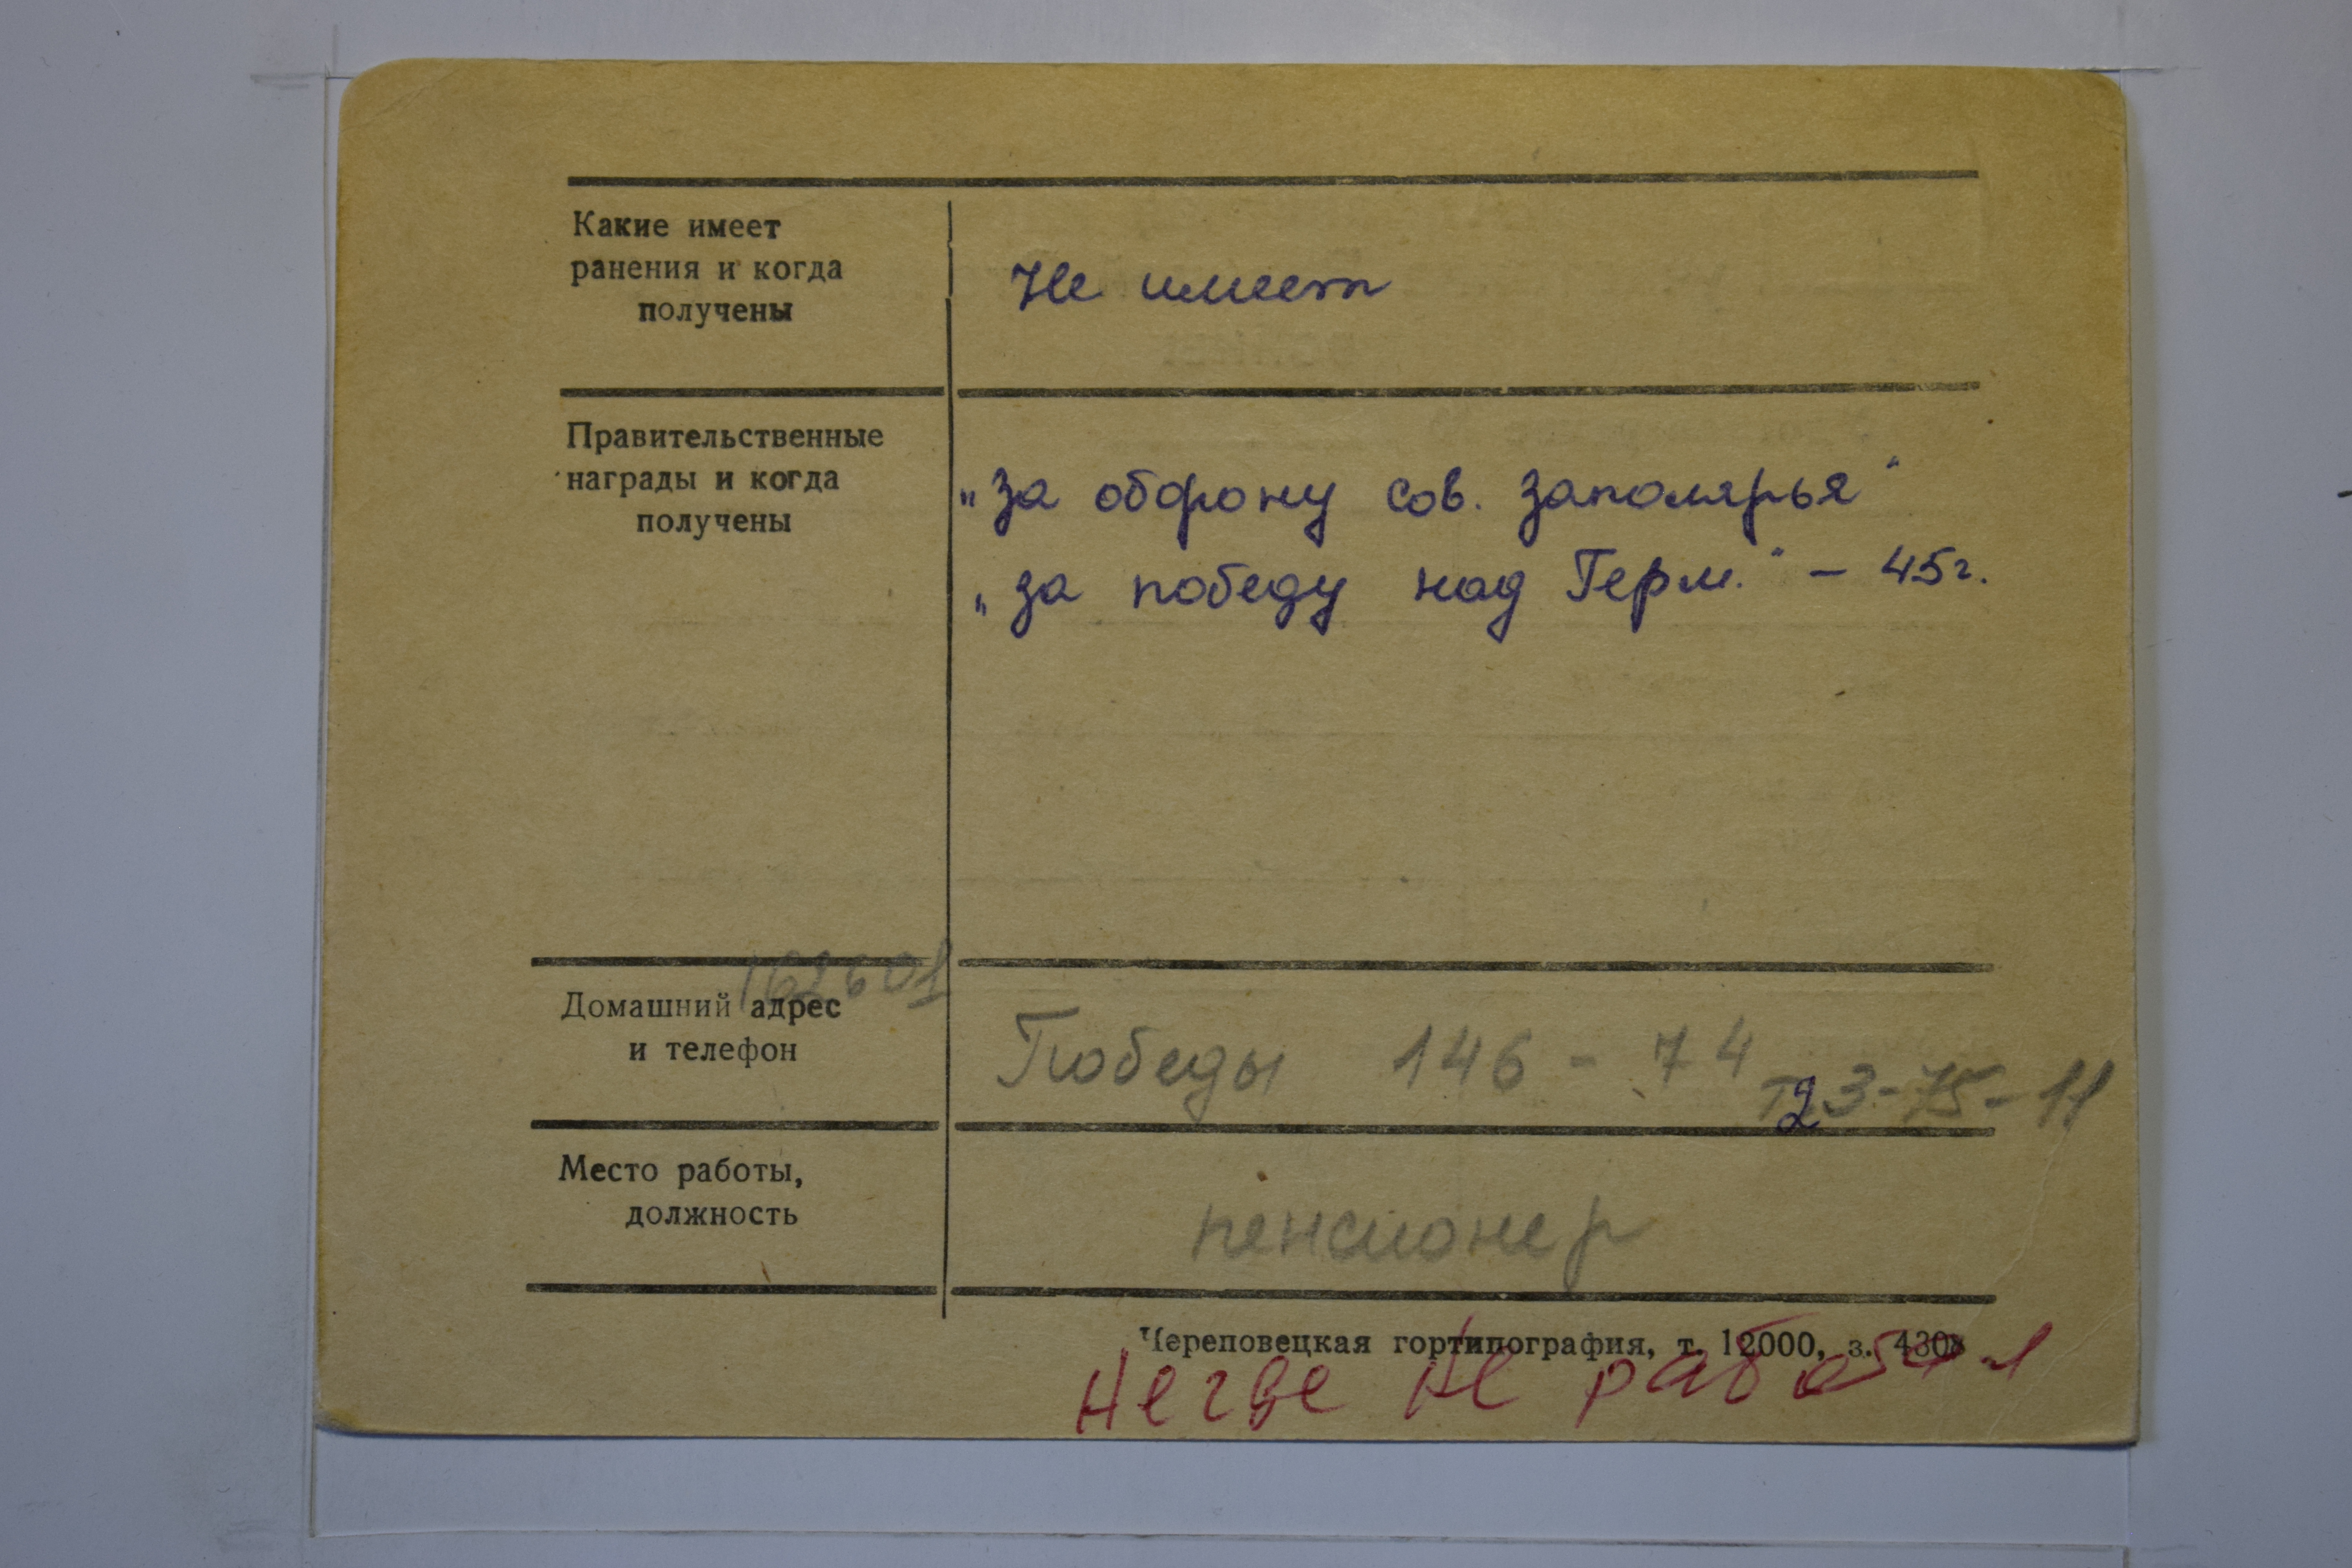 Какие имеет
ранения и когда
получены
Не имеет
Правительственные
награды и когда
получены
„за оборону сов. заполярья“
„за победу над Герм.“ – 45г.
162601
Домашний адрес
и телефон
Победы 146 - 74
т. 23-75-11
Место работы,
должность
пенсионер
Череповецкая гортипография, т. 12000, з. 4308
Негде не работал